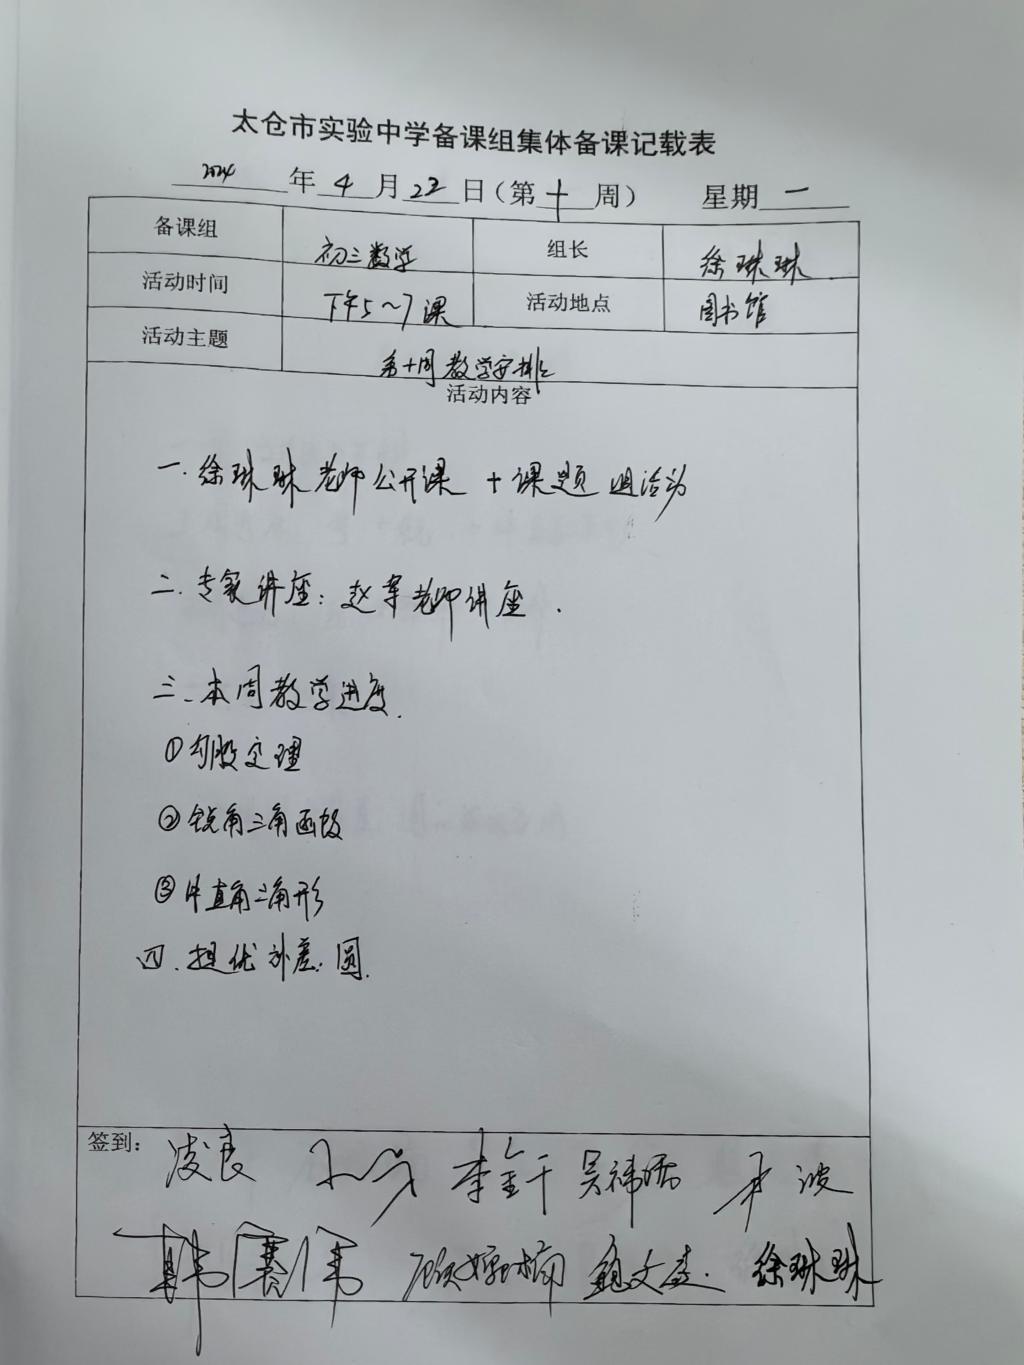 太仓市实验中学备课组集体备课记载表
2024 年 4 月 22 日（第 十 周） 星期 一
备课组 初三数学 组长 徐琳琳
活动时间 下午5~7课 活动地点 图书馆
活动主题 第十周教学安排
活动内容
一. 徐琳琳老师公开课 + 课题组活动
二. 专家讲座: 赵军老师讲座.
三、本周教学进度.
①勾股定理
②锐角三角函数
③解直角三角形
四. 提优补差: 圆.
签到: 凌良 李金千
韩赛伟 徐琳琳